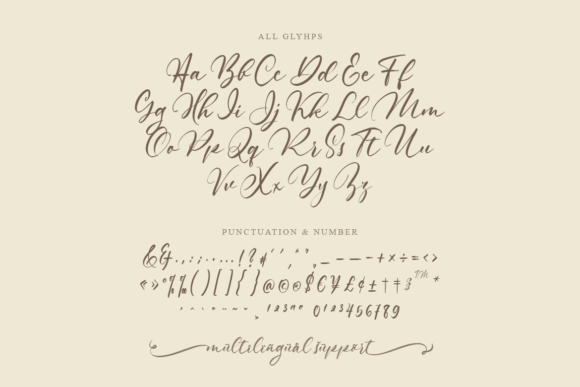 ALL GLYHPS
Aa Bb Cc Dd Ee Ff
Gg Hh Ii Jj Kk Ll Mm
Oo Pp Qq Rr Ss Tt Uu
Vv Xx Yy Zz
PUNCTUATION & NUMBER
& . , : ; ... ! ? # _ - + × ÷ = < >
« » % ( ) [ ] { } @ © $ € ¥ £ ¢ ± † ‡ TM *
0 1 2 3 4 5 6 7 8 9
multilingual support